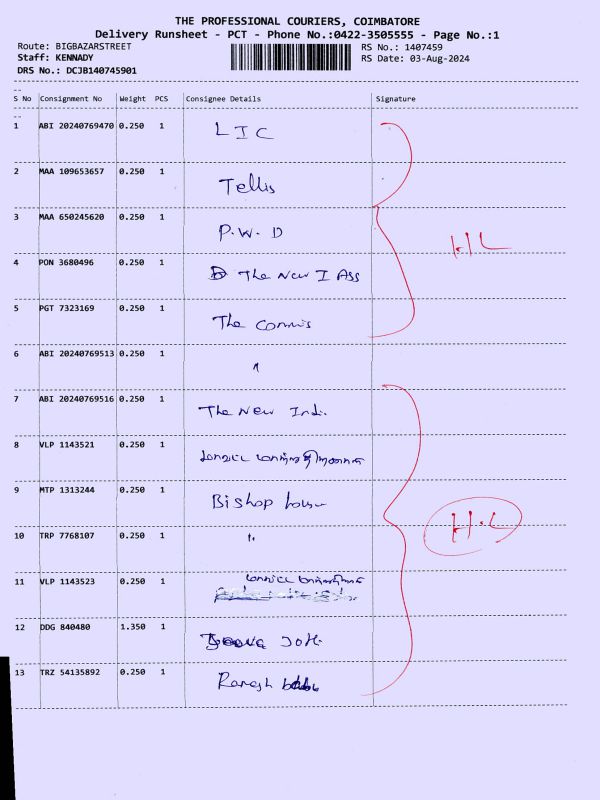 THE PROFESSIONAL COURIERS, COIMBATORE
Delivery Runsheet - PCT - Phone No.:0422-3505555 - Page No.:1
Route: BIGBAZARSTREET RS No.: 1407459
Staff: KENNADY RS Date: 03-Aug-2024
DRS No.: DCJB140745901
--
S No Consignment No Weight PCS Consignee Details Signature
--
1 ABI 20240769470 0.250 1 LIC
2 MAA 109653657 0.250 1 Tellis
3 MAA 650245620 0.250 1 P.W.D
H L
4 PON 3680496 0.250 1 The New I Ass
5 PGT 7323169 0.250 1 The Commis
6 ABI 20240769513 0.250 1 "
7 ABI 20240769516 0.250 1 The New Indi.
8 VLP 1143521 0.250 1
9 MTP 1313244 0.250 1 Bishop house
H.L
10 TRP 7768107 0.250 1 "
11 VLP 1143523 0.250 1
12 DDG 840480 1.350 1
13 TRZ 54135892 0.250 1 Ramesh babu